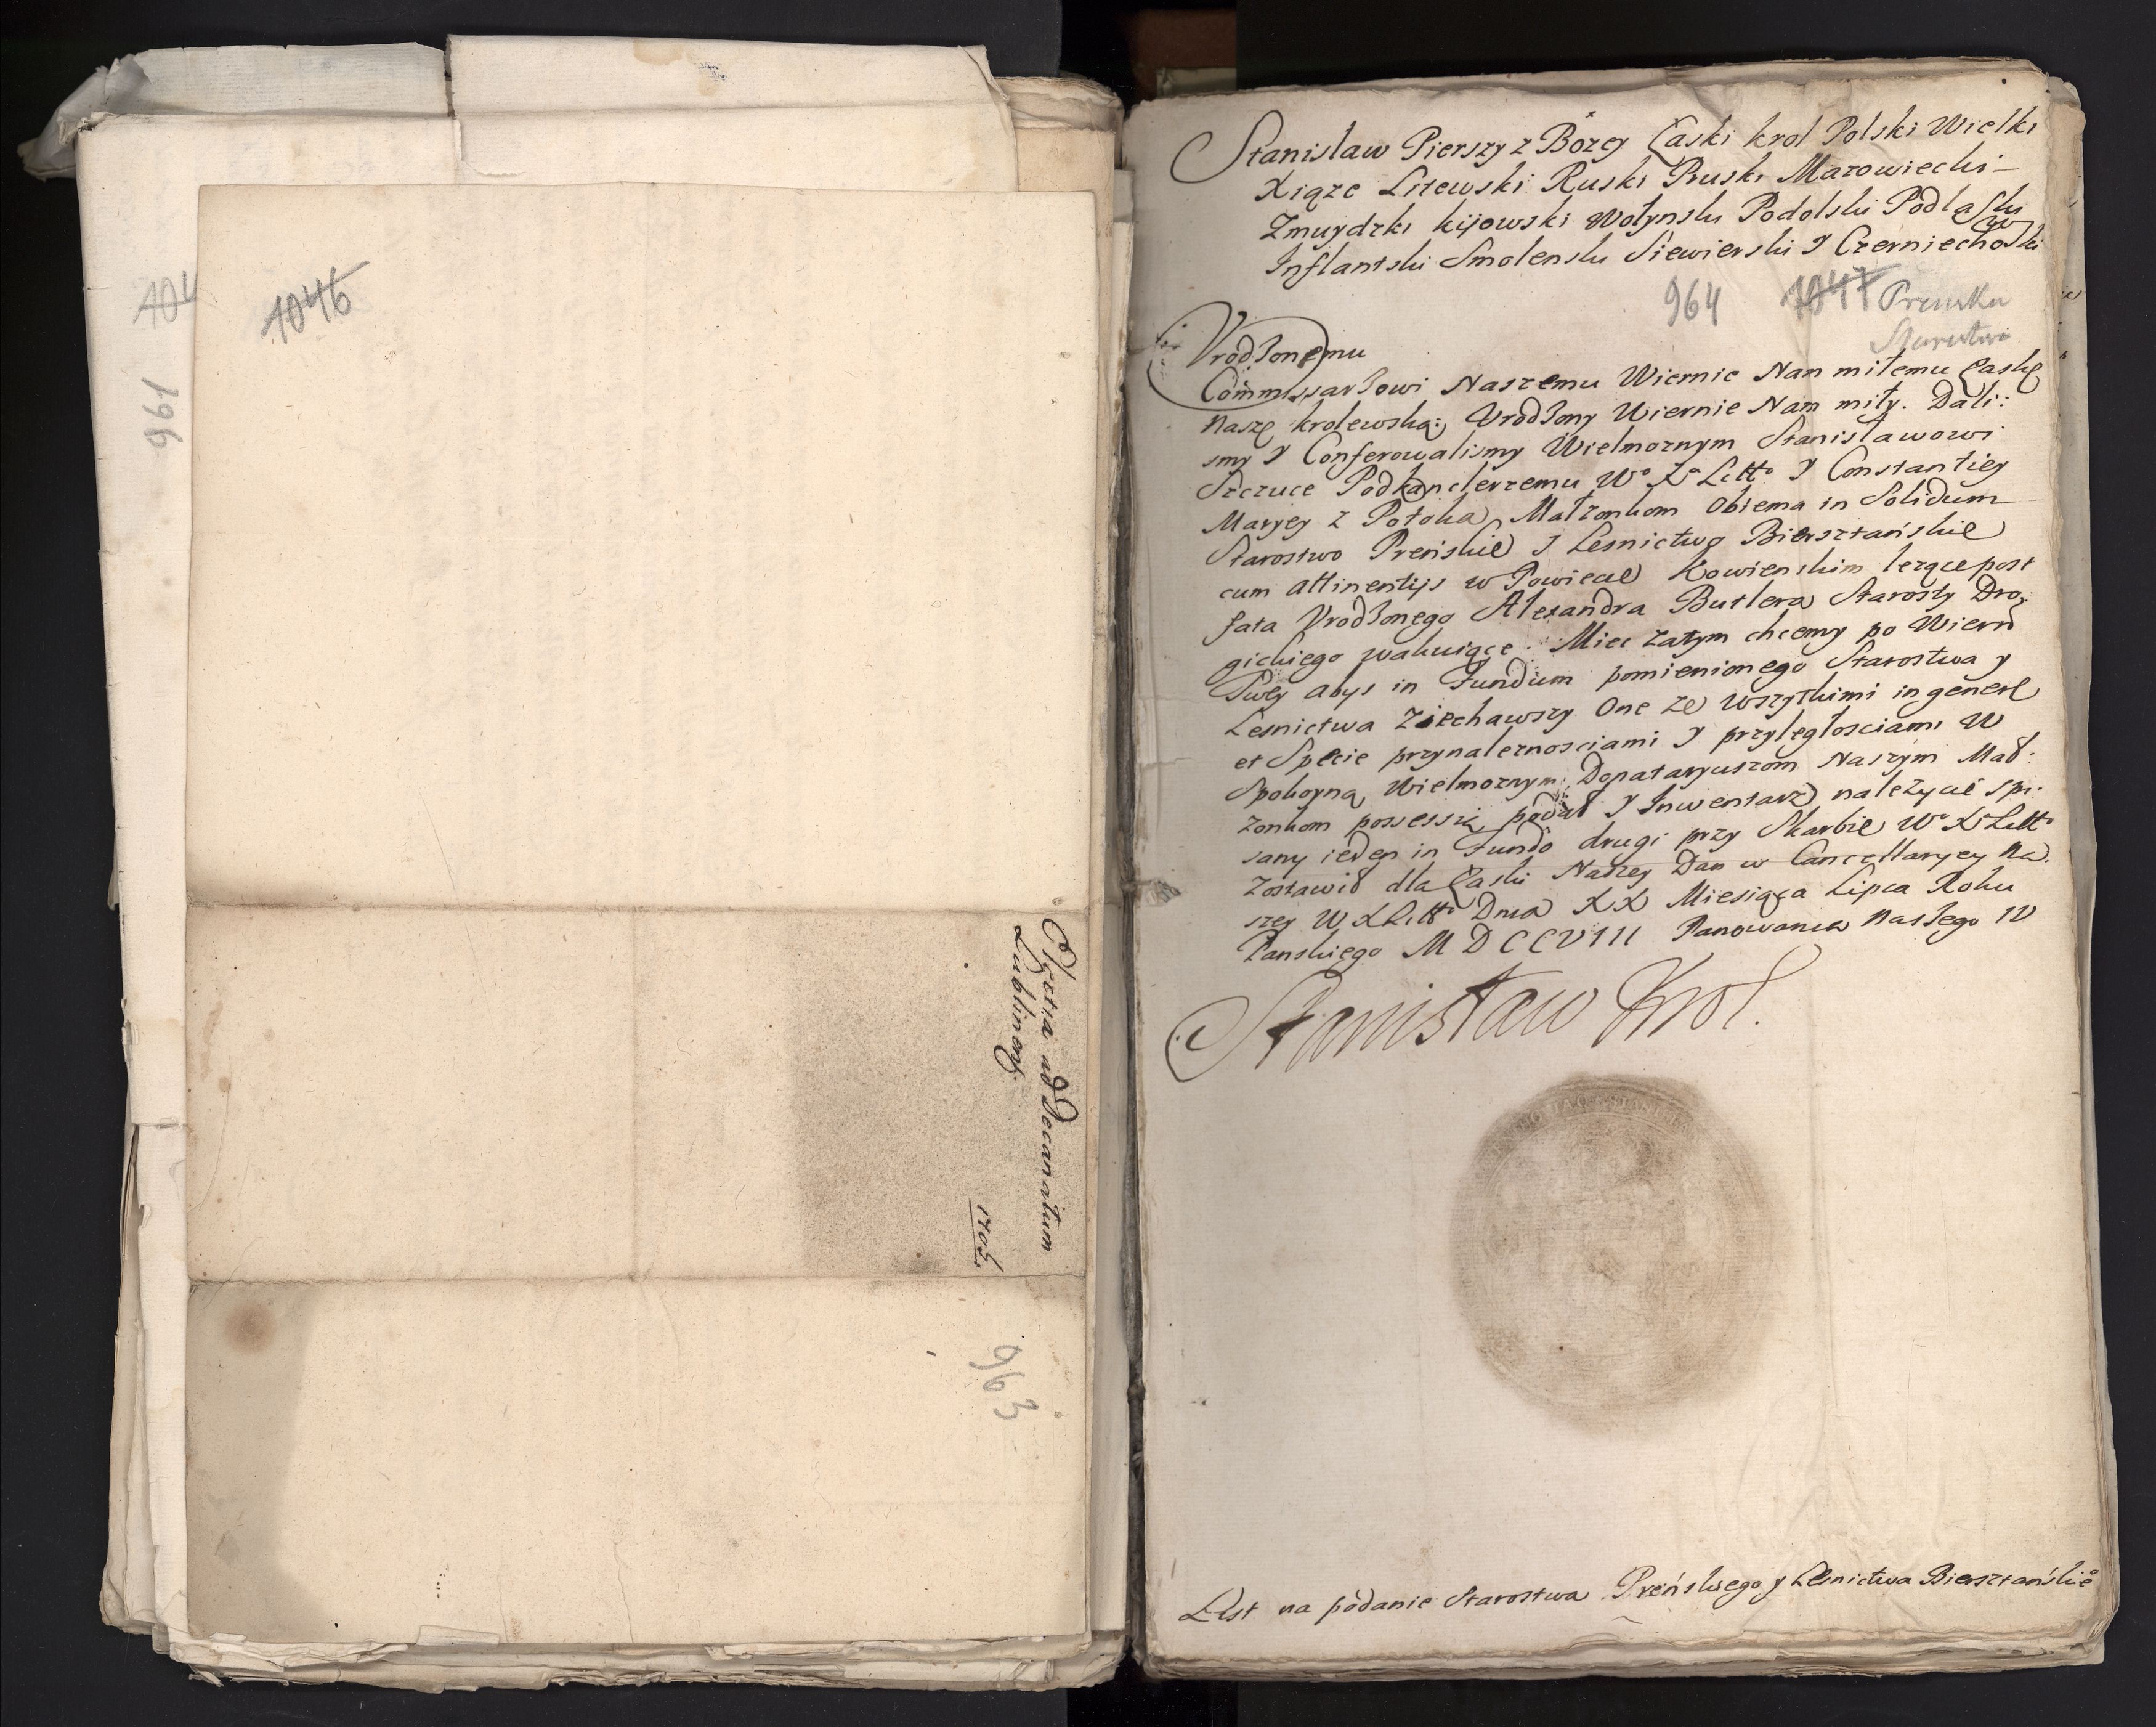 104
961
1046
Electia ad Decanatum
Lublinens.
1705
963
Stanislaw Pierszy z Bozey Łaski krol Polski Wielki
Xiąze Litewski Ruski Pruski Mazowiecki
Zmuydzki kijowski Wołynski Podolski Podlaski
Inflantski Smolenski Siewierski y Czerniechowski
964 1047 Preuska
Starostwo
Vrodzonemu
Commissarzowi Naszemu Wiernie Nam miłemu Łaskę
Naszę krolewską; Vrodzony Wiernie Nam miły. Dali:
smy y Conferowalismy Wielmoznym Stanisławowi
Szczuce Podkanclerzemu Wo Xa Litto y Constantiey
Maryey z Potoka Małzonkom Obiema in Solidum
Starostwo Preńskie y Lesnictwo Biersztańskie
cum attinentijs w Powiecie Kowienskim lezące post
fata Vrodzonego Alexandra Butlera Starosty Dro:
gickiego wakuiące. Miec zatym chcemy po Wiern
Twey abys in Fundum pomienionego Starostwa y
Lesnictwa Ziechawszy One ze wszytkimi in genere
et Specie przynaleznosciami y przyległosciami W
Spokoyną Wielmoznym Donataryuszom Naszym Mał:
zonkom possessią podał y Inwentarz nalezycie spi:
sany ieden in Fundo drugi przy Skarbie Wo Xa Litto
Zostawił dla Łaski Naszey Dan w Cancellaryey Na:
szey W X Litto Dnia XX Miesiąca Lipca Roku
Panskiego MDCCVIII Panowania Naszego IV
Stanisław Krol.
List na podanie Starostwa Preńskiego y Lesnictwa Biersztańskie